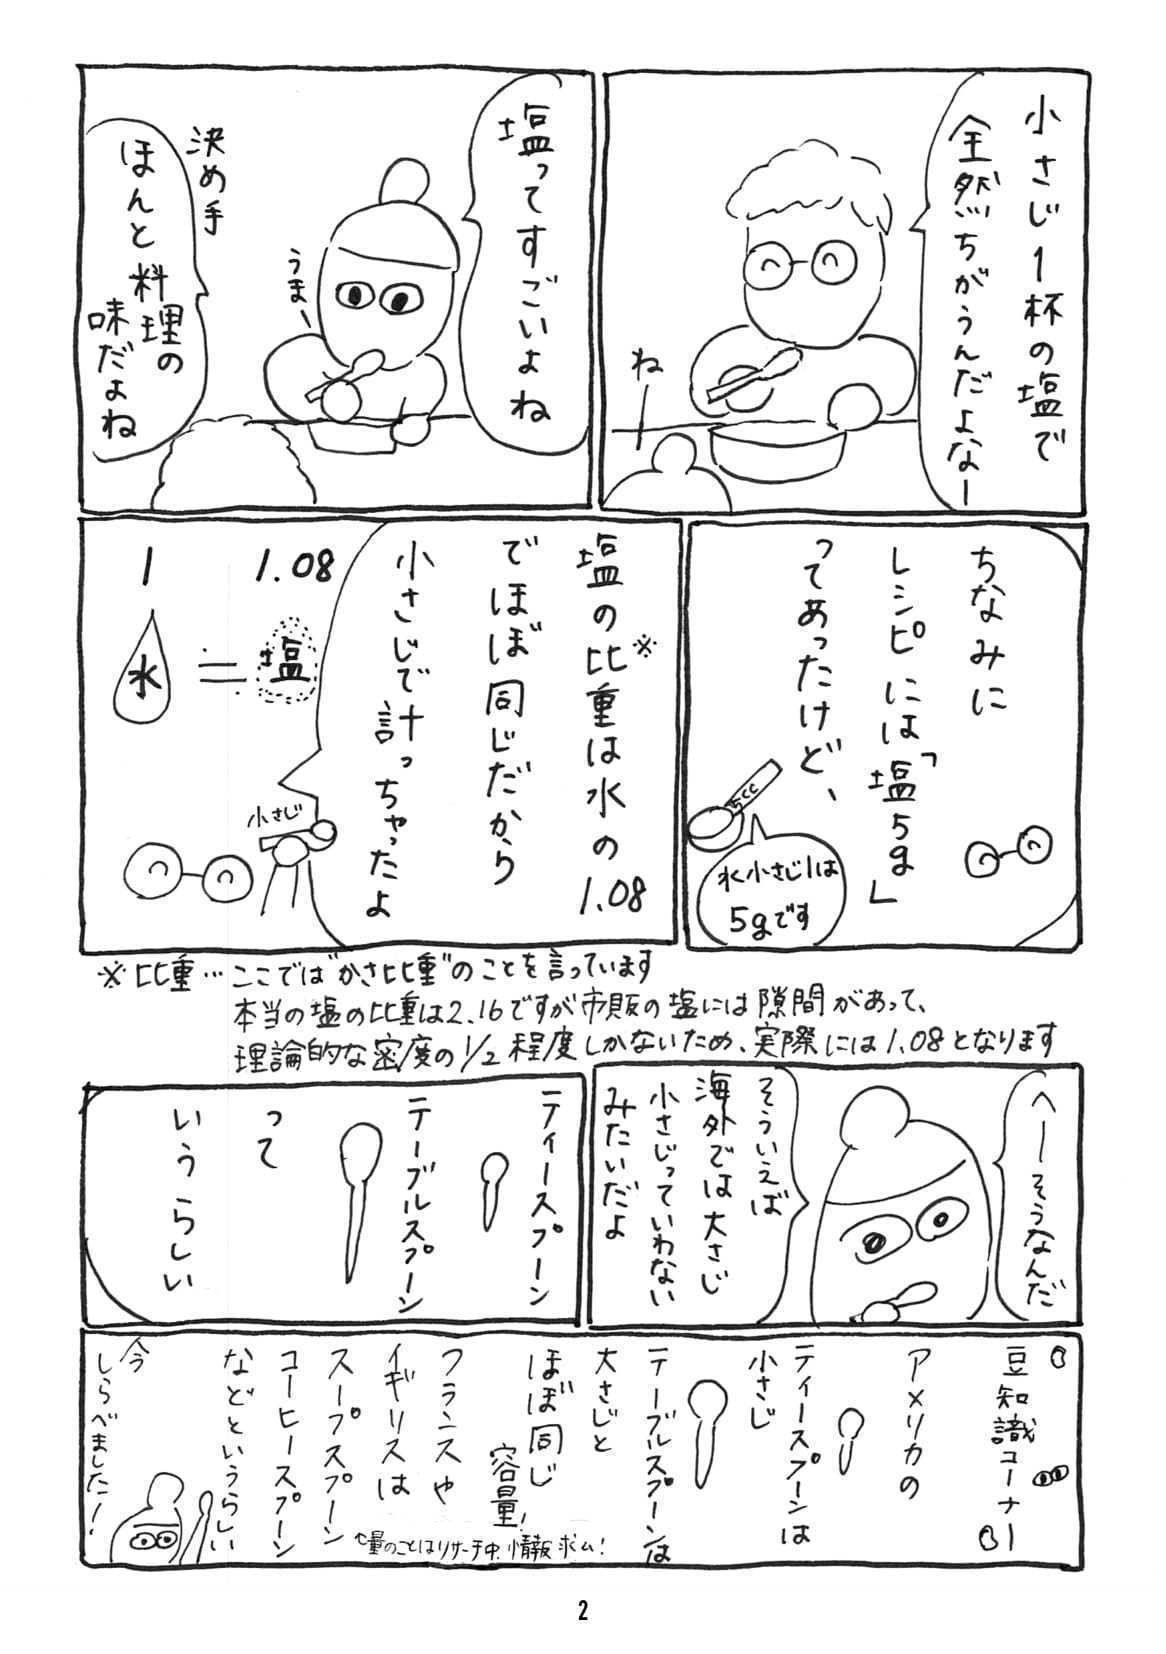 小さじ1杯の塩で
全然ちがうんだよなー
ね
塩ってすごいよね
うまー
決め手
ほんと料理の
味だよね
ちなみに
レシピには「塩5g」
ってあったけど、
5cc
水小さじ1は
5gです
塩の比重※は水の1.08
でほぼ同じだから
小さじで計っちゃったよ
小さじ
1.08
塩
=
1
水
※比重…ここでは"かさ比重"のことを言っています
本当の塩の比重は2.16ですが市販の塩には隙間があって、
理論的な密度の1/2程度しかないため、実際には1.08となります
へーそうなんだ
そういえば
海外では大さじ
小さじっていわない
みたいだよ
ティースプーン
テーブルスプーン
って
いうらしい
豆知識コーナー
アメリカの
ティースプーンは
小さじ
テーブルスプーンは
大さじと
ほぼ同じ
容量!
フランスや
イギリスは
スープスプーン
コーヒースプーン
などというらしい
量のことはリサーチ中、情報求ム!
今
しらべました!
2